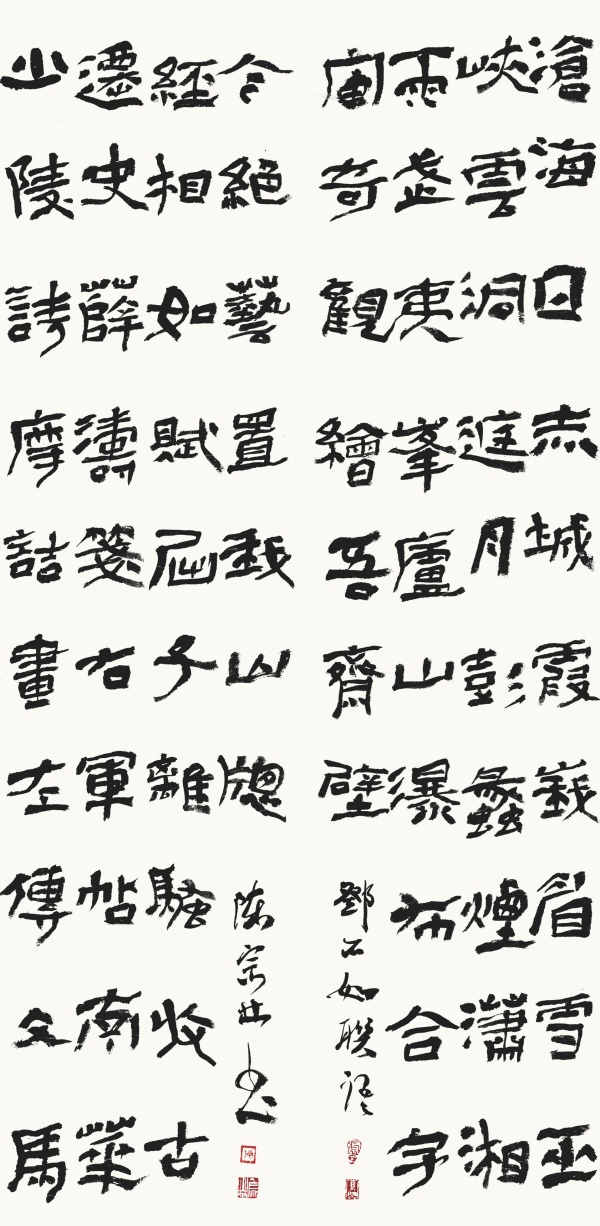 滄海日赤城霞峩眉雪巫
峽雲洞庭月彭蠡煙瀟湘
雨武夷峯廬山瀑布合宇
宙奇觀繪吾齋壁
鄧石如聯語
少陵詩摩詰畫左傳文馬
遷史薛濤箋右軍帖南華
經相如賦屈子離騷收古
今絕藝置我山牕
陳宗書